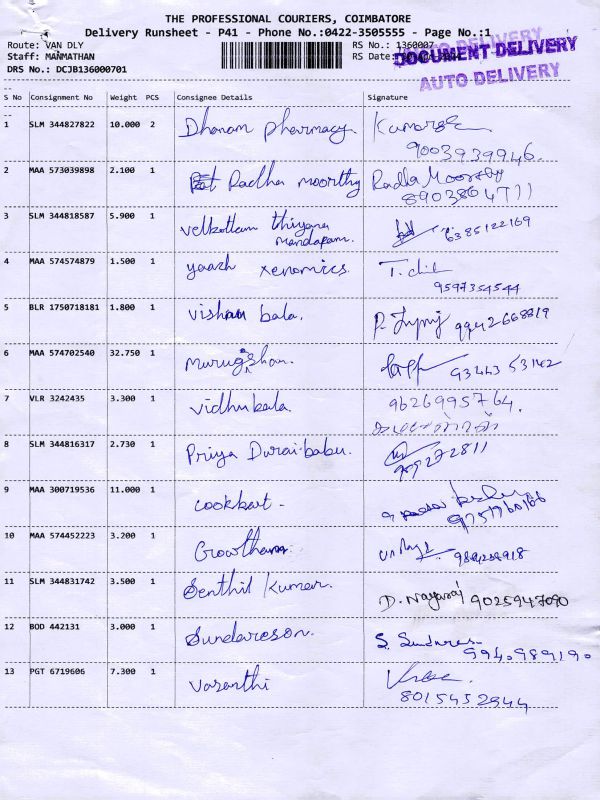 THE PROFESSIONAL COURIERS, COIMBATORE
Delivery Runsheet - P41 - Phone No.:0422-3505555 - Page No.:1
Route: VAN DLY RS No.: 1360007
Staff: MANMATHAN RS Date:
DOCUMENT DELIVERY
AUTO DELIVERY
DRS No.: DCJB136000701
S No Consignment No Weight PCS Consignee Details Signature
1 SLM 344827822 10.000 2 Dhanam pharmacy
9003939946.
2 MAA 573039898 2.100 1 Radha moorthy Radha Moorthy
8903864711
3 SLM 344818587 5.900 1 velkottam thiyana
mandapam. 6385122169
4 MAA 574574879 1.500 1 yaazh xenomics.
9597354544
5 BLR 1750718181 1.800 1 vishnu bala. 9942668819
6 MAA 574702540 32.750 1 Murugeshan. 93443 53142
7 VLR 3242435 3.300 1 vidhubala. 9626995764.
8 SLM 344816317 2.730 1 Priya Durai babu.
9 MAA 300719536 11.000 1 cookkart -
9751760166
10 MAA 574452223 3.200 1
11 SLM 344831742 3.500 1 Senthil Kumar. D. Nagaraj 9025947090
12 BOD 442131 3.000 1 Sundareson.
9940989190
13 PGT 6719606 7.300 1 Vasanthi
8015452944